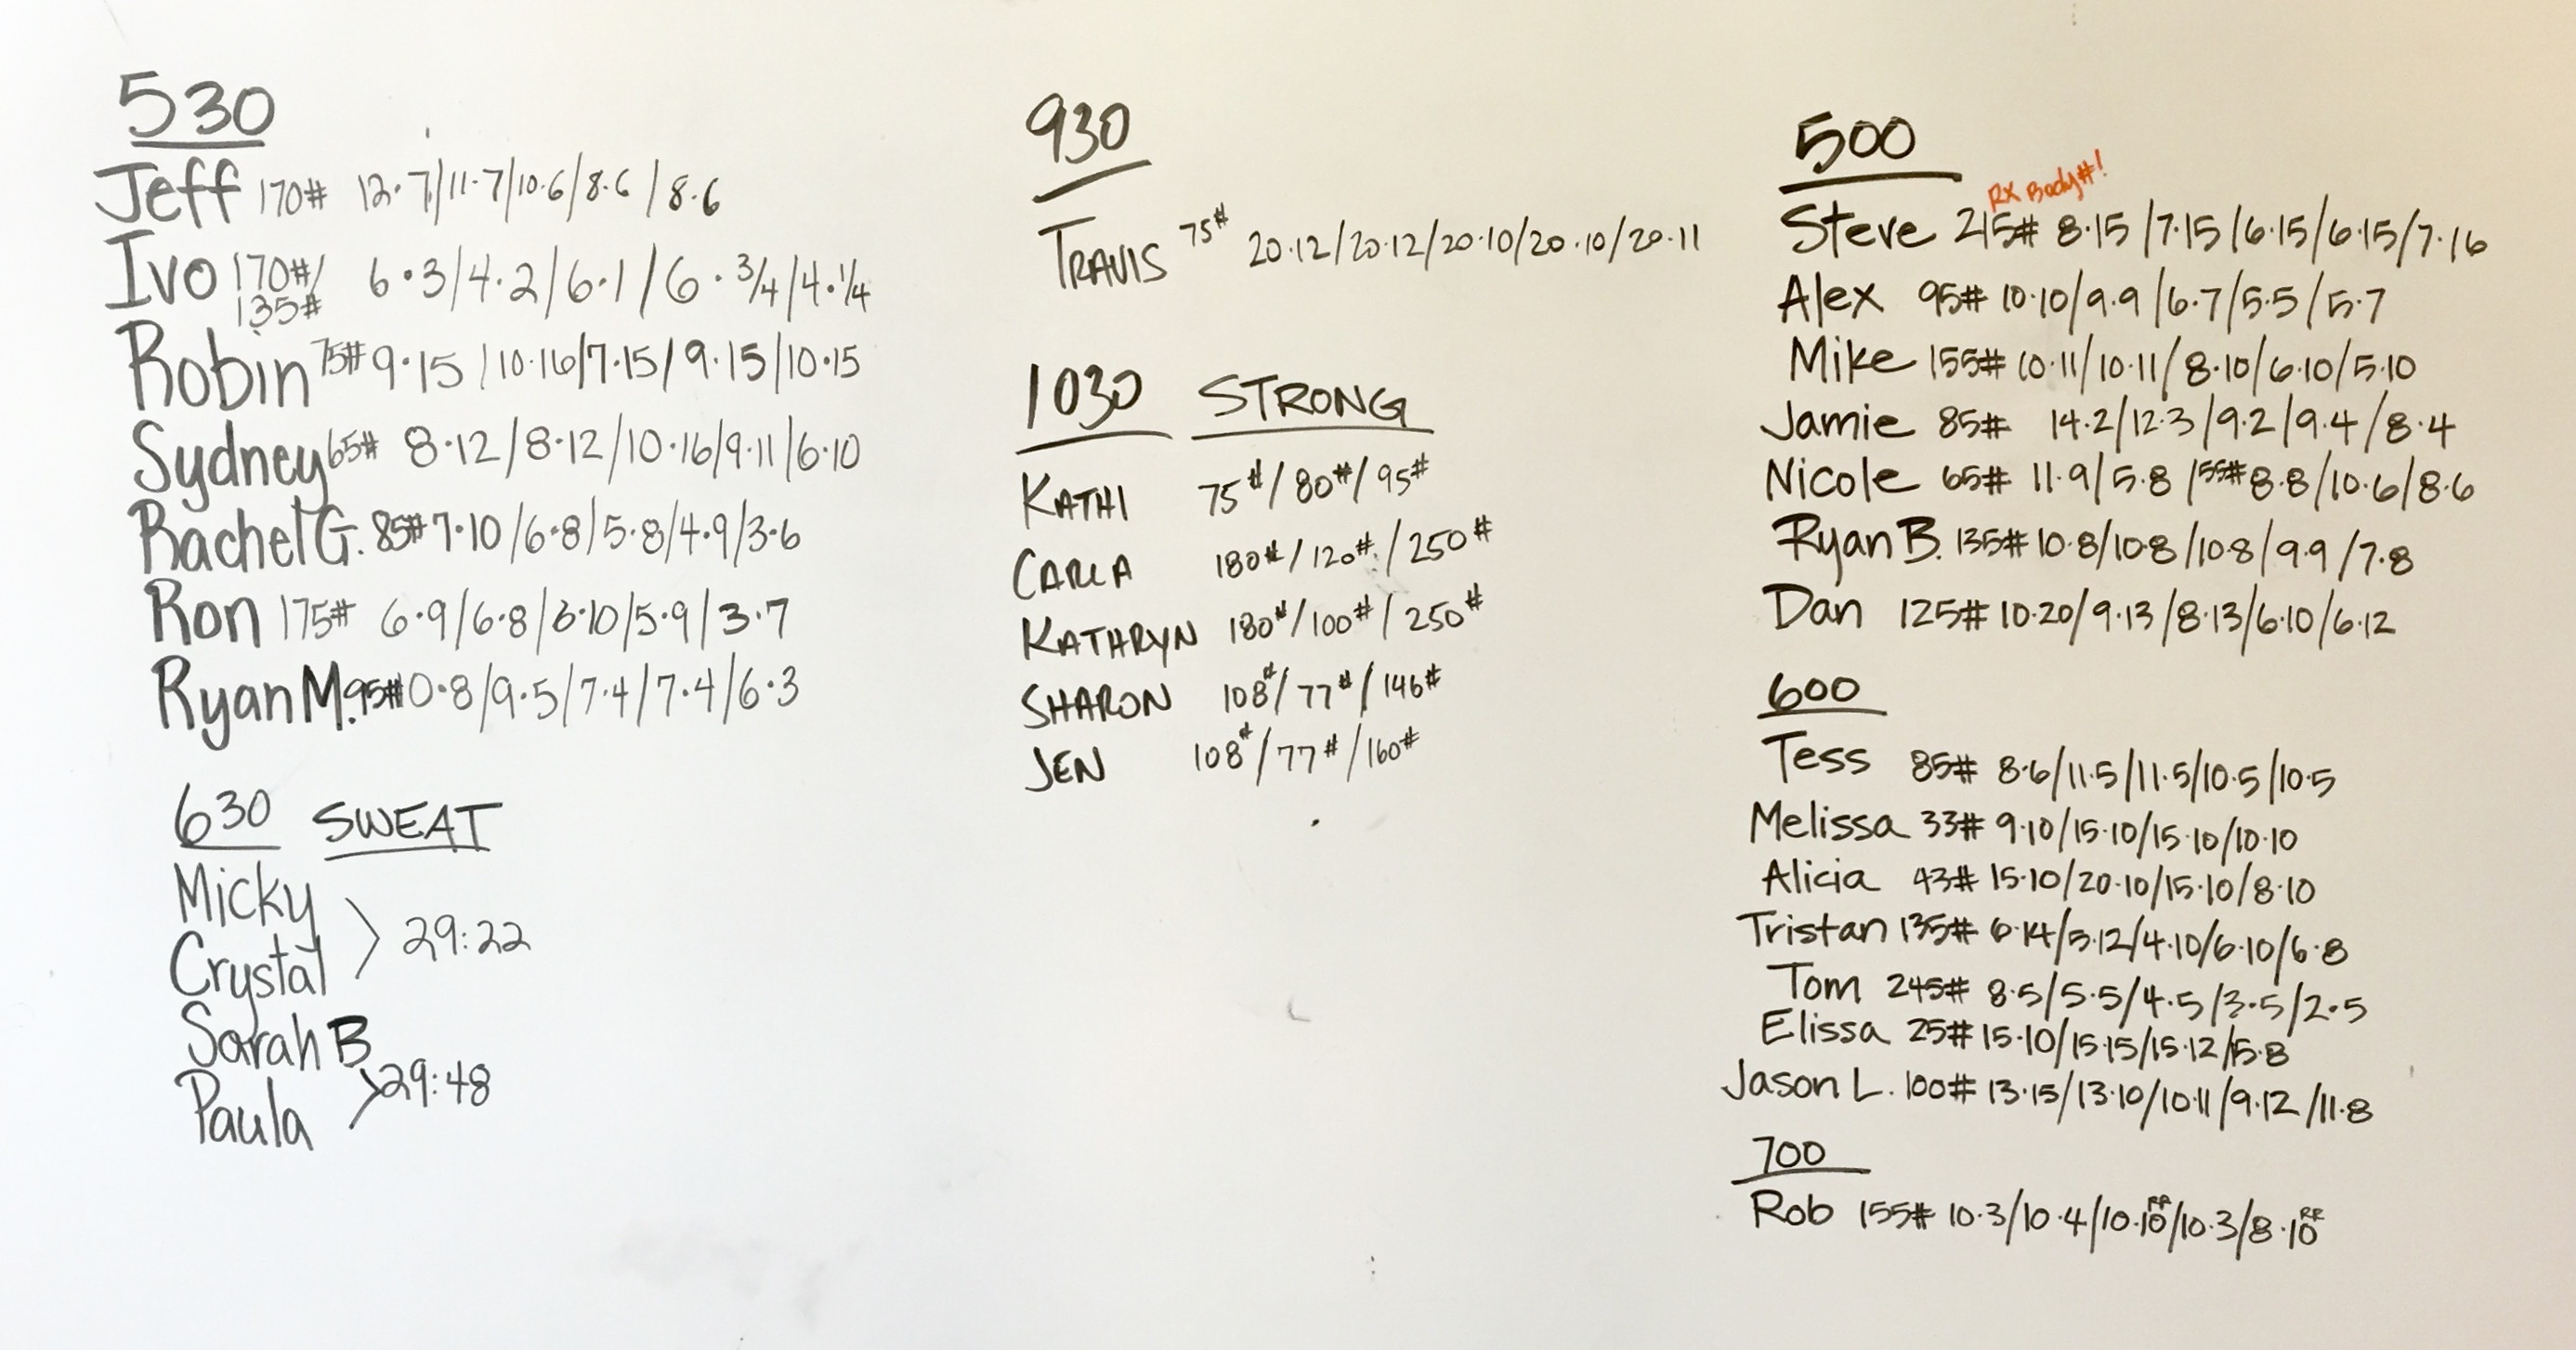 530
Jeff 170# 12·7/11·7/10·6/8·6/8·6
Ivo 170#/ 6·3/4·2/6·1/6·3/4/4·1/4
135#
Robin 75# 9·15/10·16/7·15/9·15/10·15
Sydney 65# 8·12/8·12/10·16/9·11/6·10
Rachel G. 85# 7·10/6·8/5·8/4·9/3·6
Ron 175# 6·9/6·8/6·10/5·9/3·7
Ryan M. 95# 10·8/9·5/7·4/7·4/6·3
630 SWEAT
Micky
Crystal > 29:22
Sarah B
Paula > 29:48
930
TRAVIS 75# 20·12/20·12/20·10/20·10/20·11
1030 STRONG
KATHI 75#/80#/95#
CARLA 180#/120#/250#
KATHRYN 180#/100#/250#
SHARON 108#/77#/146#
JEN 108#/77#/160#
500
RX Body#!
Steve 215# 8·15/7·15/6·15/6·15/7·16
Alex 95# 10·10/9·9/6·7/5·5/5·7
Mike 155# 10·11/10·11/8·10/6·10/5·10
Jamie 85# 14·2/12·3/9·2/9·4/8·4
Nicole 65# 11·9/5·8/55# 8·8/10·6/8·6
Ryan B. 135# 10·8/10·8/10·8/9·9/7·8
Dan 125# 10·20/9·13/8·13/6·10/6·12
600
Tess 85# 8·6/11·5/11·5/10·5/10·5
Melissa 33# 9·10/15·10/15·10/10·10
Alicia 43# 15·10/20·10/15·10/8·10
Tristan 135# 6·14/5·12/4·10/6·10/6·8
Tom 245# 8·5/5·5/4·5/3·5/2·5
Elissa 25# 15·10/15·15/15·12/15·8
Jason L. 100# 13·15/13·10/10·11/9·12/11·8
700
Rob 155# 10·3/10·4/10·10 RR/10·3/8·10 RR